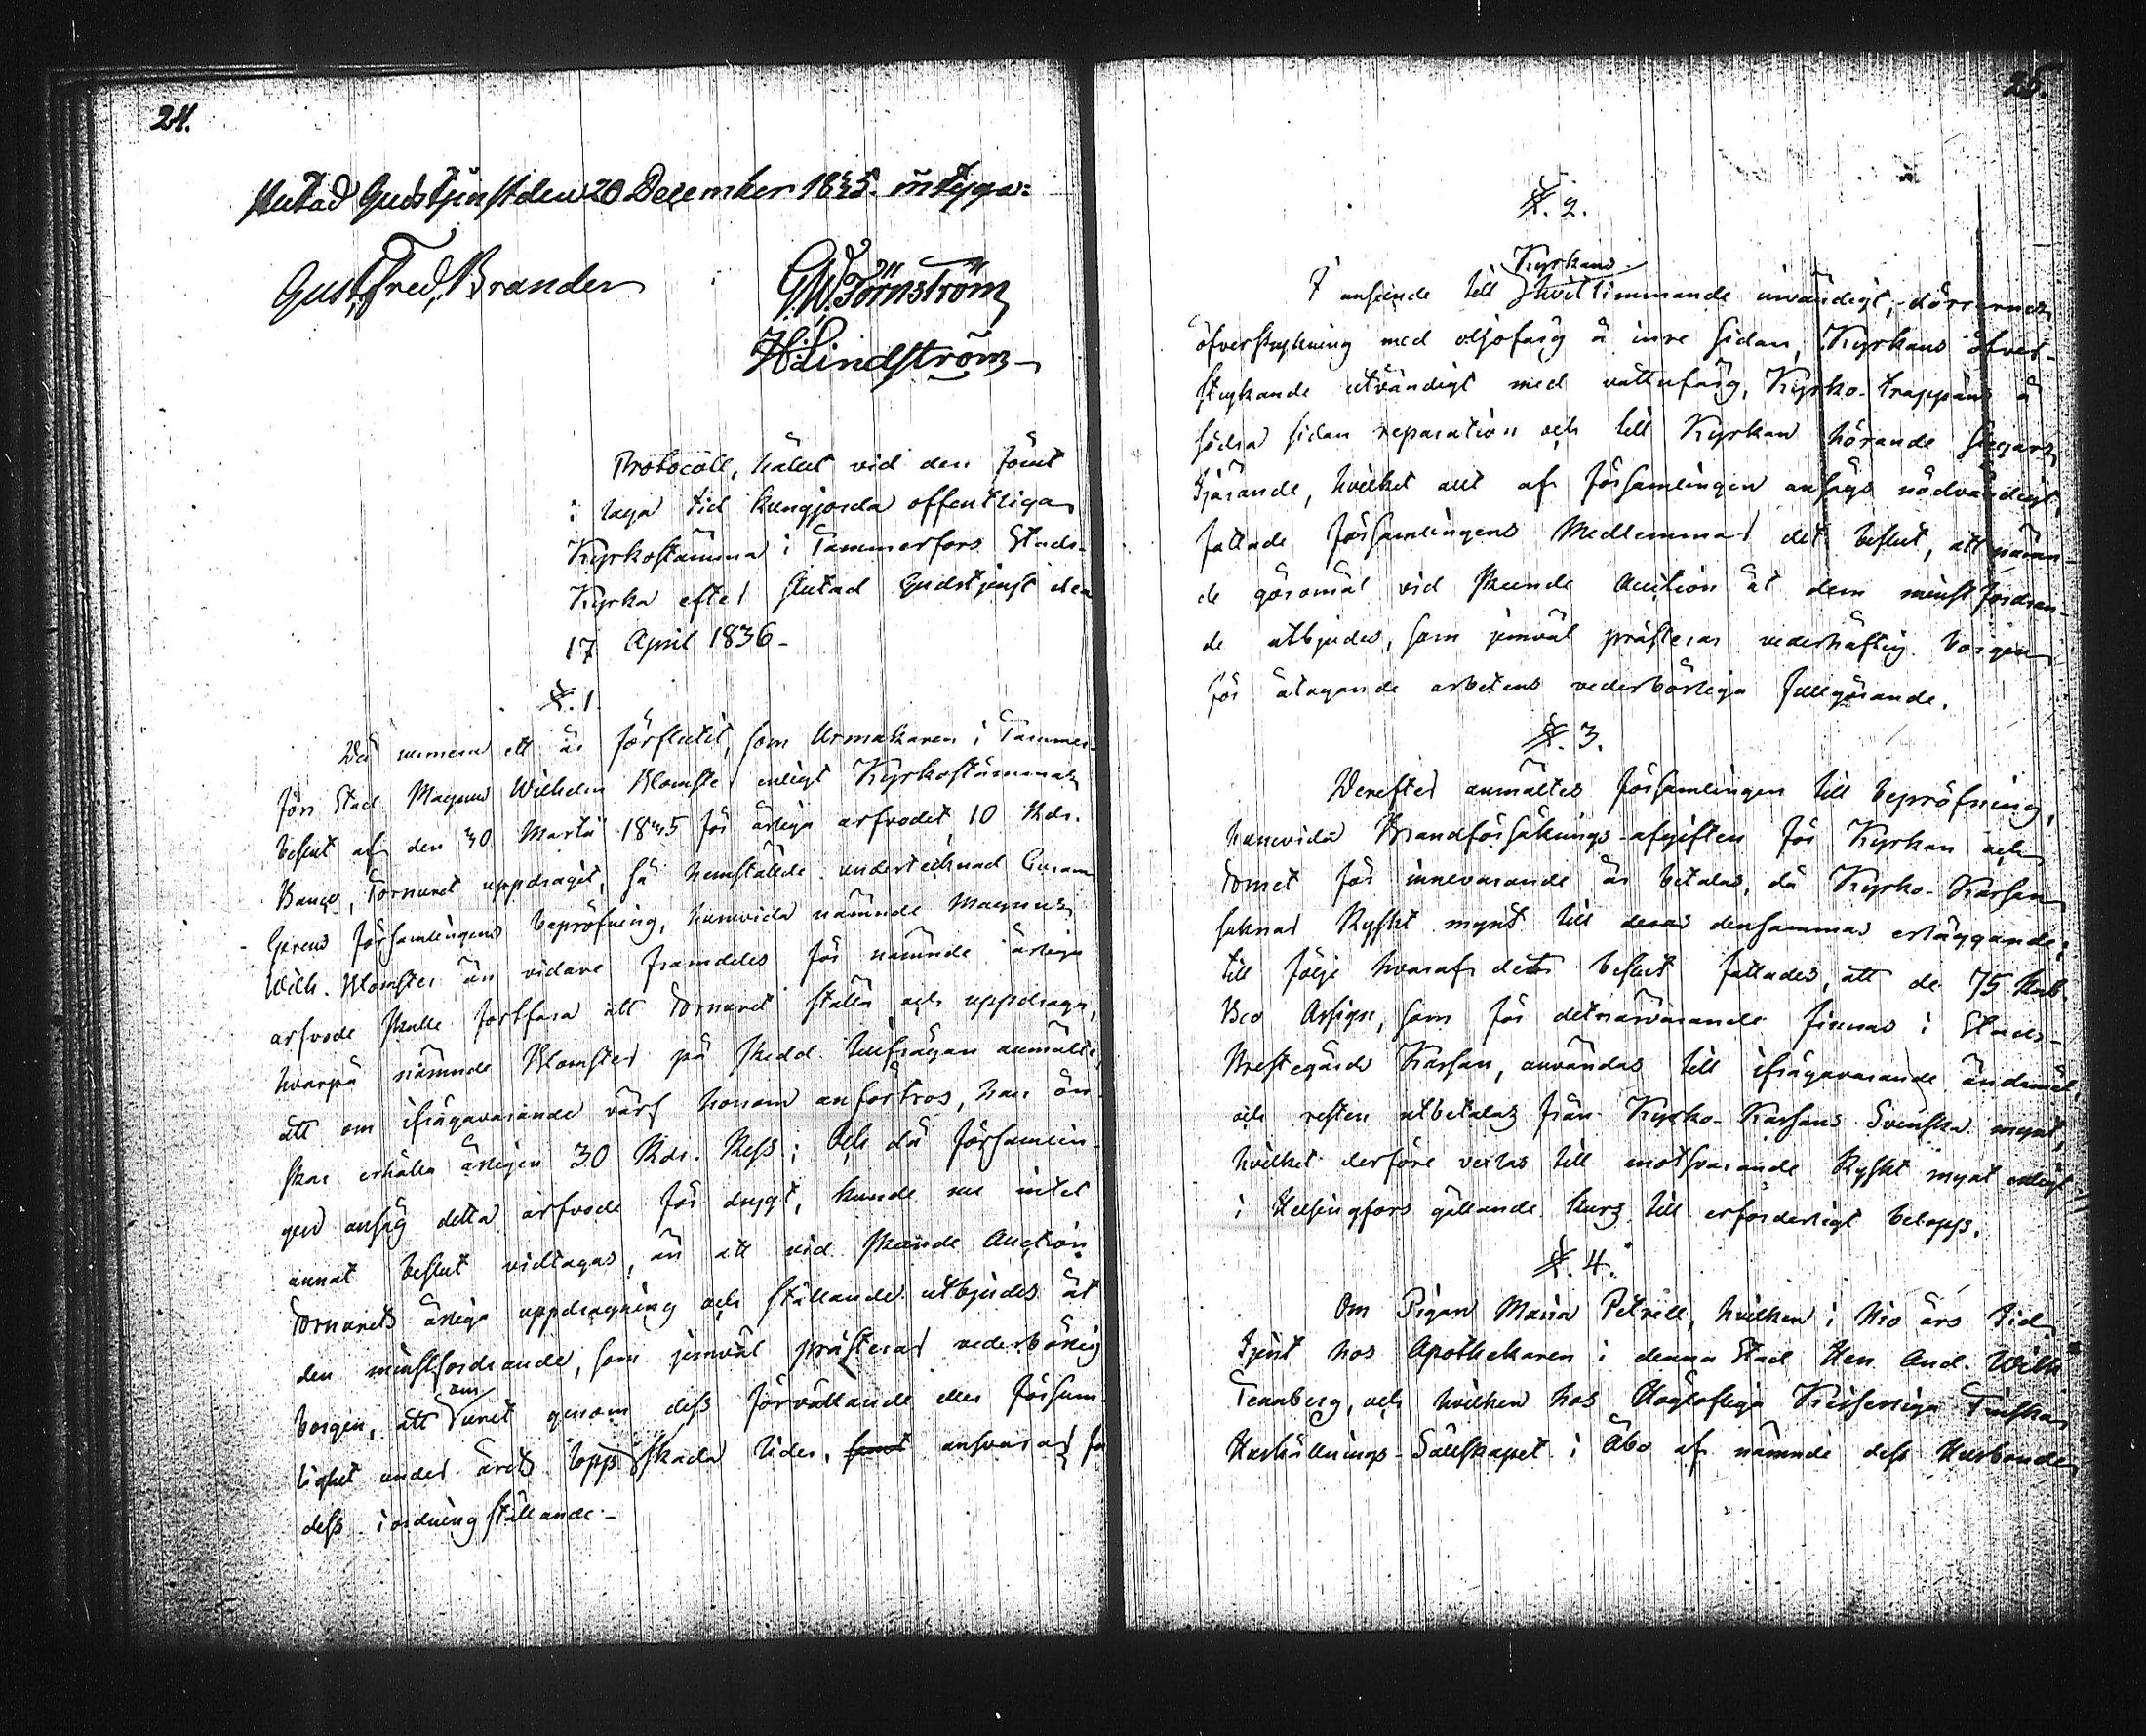 24.
slutad Gudstjenst den 20 December 1835. intyga:
Gust. Fred. Brander
G.W. Törnström
H. Lindström
Protocoll, hållit vid den förut
i laga tid kungjorda offentliga
Kyrkostämma i Tammerfors Stads
Kyrka efter slutad Gudstjenst den
17 April 1836.
§. 1.
Då numera ett år förflutit, som Urmakaren i Tammer-
fors Stad Magnus Wilhelm Blomster enligt Kyrkostämmans
beslut af den 30 Martii 1835 för årliga arfvodet 10 Rdr.
Banco, Tornuret uppdragit, så hemställde undertecknad
Församlingens bepröfning, huruvida nämnde Magnus
Wilh. Blomster än vidare framdeles för nämnde årliga
arfvode skulle fortfara att Tornuret ställa och uppdraga,
hvarpå nämnde Blomster på skedd tillfrågan anmälte,
att om ifrågavarande värf honom anförtros, han ön-
skar erhålla årligen 30 Rdr. Rgs; Och då Församlin-
gen ansåg detta arfvode för drygt, kunde nu intet
annat beslut vidtagas, än att vid skeende Auction
Tornurets årliga uppdragning och ställande utbjudes åt
den minstfordrande, som jemväl præsterar vederbörlig
borgen, att om uret genom dess förvållande eller försum-
lighet under årets lopp skada lider, ansvarar för
dess iordning ställande.
25.
§. 2.
I anseende till Kyrkans hvitlimmande invändigt, dörrarnes
öfverstrykning med oljofärg å inre sidan, Kyrkans öfver-
strykande utvändigt med vattufärg, Kyrko-trappans å
södra sidan reparation och till Kyrkan hörande
tjärande, hvilket allt af Församlingen ansågs nödvändigt,
fattade Församlingens Medlemmar det beslut, att nämn-
de göromål vid skeende Auction åt den minst fordran-
de utbjudes, som jemväl præsterar vederhäftig borgen
för åtagande arbetens vederbörliga fullgörande.
§. 3.
Derefter anmältes Församlingen till bepröfning,
huruvida Brandförsäkrings-afgiften för Kyrkan och
Tornet för innevarande år betalas, då Kyrko-Kassan
saknar Ryskt mynt till densammas erläggande;
till följe hvaraf det beslut fattades, att de 75 Rub.
Bco Assign, som för det närvarande finnas i Stads-
Prestegårds Kassan, användas till ifrågavarande ändamål,
och resten utbetalas från Kyrko-Kassans Svenska mynt,
hvilket derföre vexlas till motsvarande Ryskt mynt enligt
i Helsingfors gällande kurs till erforderligt belopp.
§. 4.
Om Pigan Maria Petrell, hvilken i Nio års tid
tjent hos Apothekaren i denna Stad Herr And. Wilh.
Tennberg, och hvilken hos Höglofliga Kejserliga Finska
Hushållnings-Sällskapet i Åbo af nämnde dess Husbonde